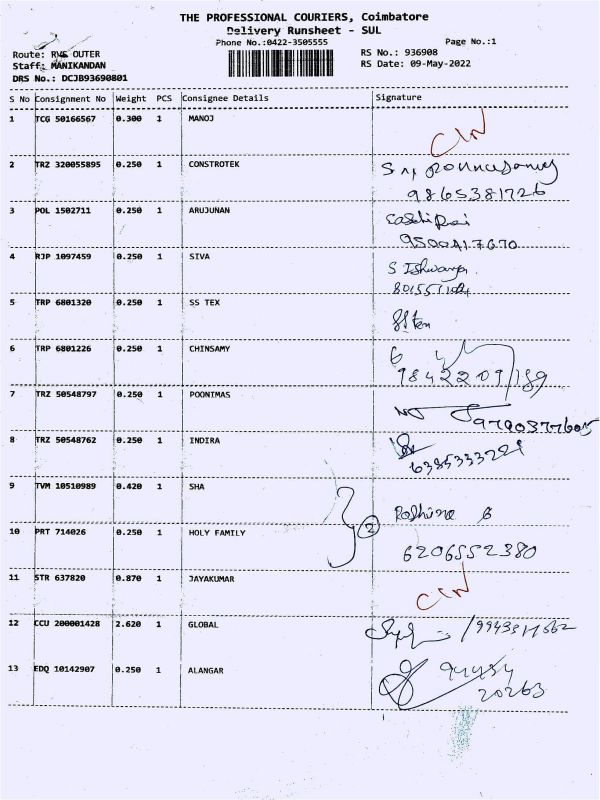 THE PROFESSIONAL COURIERS, Coimbatore
Delivery Runsheet - SUL
Phone No.:0422-3505555
Page No.:1
Route: RVS OUTER
RS No.: 936908
Staff: MANIKANDAN
RS Date: 09-May-2022
DRS No.: DCJB93690801
S No Consignment No Weight PCS Consignee Details Signature
1 TCG 50166567 0.300 1 MANOJ
2 TRZ 320055895 0.250 1 CONSTROTEK
9865381726
3 POL 1502711 0.250 1 ARUJUNAN
9500417670
4 RJP 1097459 0.250 1 SIVA S Ishwarya
5 TRP 6801320 0.250 1 SS TEX
6 TRP 6801226 0.250 1 CHINSAMY
7 TRZ 50548797 0.250 1 POONIMAS
8 TRZ 50548762 0.250 1 INDIRA
9 TVM 10510989 0.420 1 SHA
2
10 PRT 714026 0.250 1 HOLY FAMILY
6206552380
11 STR 637820 0.870 1 JAYAKUMAR
12 CCU 200001428 2.620 1 GLOBAL
13 EDQ 10142907 0.250 1 ALANGAR 94434
20263